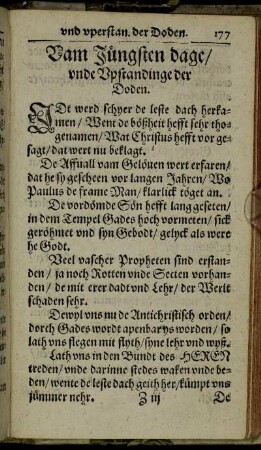 vnd vperstan. der Doden. 177
Vam Jüngsten dage/
vnde Vpstandinge der
Doden.
IDt werd schyer de leste dach herka-
men/ Wente de bößheit hefft sehr tho-
genamen/ Wat Christus hefft vor ge-
sagt/ dat wert nu beklagt.
De Affuall vam Gelöuen wert erfaren/
dat he sy gescheen vor langen Jahren/ Wo
Paulus de frame Man/ klarlick töget an.
De vordömde Sön hefft lang geseten/
in dem Tempel Gades hoch vormeten/ sick
geröhmet vnd syn Gebodt/ gelyck als were
he Godt.
Veel valscher Propheten sind erstan-
den/ ja noch Rotten vnde Secten vorhan-
den/ de mit erer dadt vnd Lehr/ der Werlt
schaden sehr.
Dewyl vns nu de Antichristisch orden/
dorch Gades wordt apenbarys worden/ so
lath vns flegen mit flyth/ syne lehr vnd wyß.
Lath vns in den Bundt des HEREN
treden/ vnde darinne stedes waken vnde be-
den/ wente de leste dach geith her/ kümpt vns
jümmer nehr. Z iij De